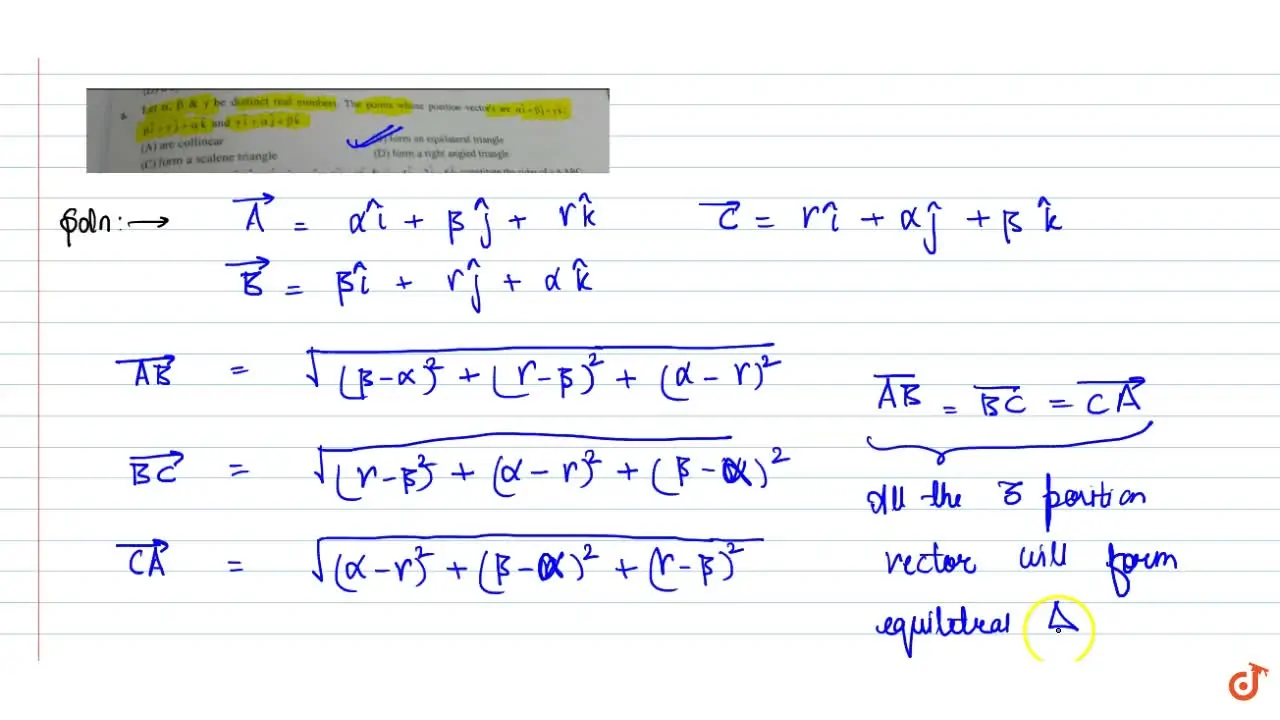 6. Let α, β & γ be distinct real numbers. The points whose position vector's are αî + βĵ + γk̂;
βî + γĵ + αk̂ and γî + αĵ + βk̂
(A) are collinear
form an equilateral triangle
(C) form a scalene triangle
(D) form a right angled triangle
Soln: → A⃗ = αî + βĵ + rk̂ C⃗ = rî + αĵ + βk̂
B⃗ = βî + rĵ + αk̂
A⃗B⃗ = √(β-α)² + (r-β)² + (α-r)²
A̅B̅ = B̅C̅ = C⃗A⃗
B⃗C⃗ = √(r-β)² + (α-r)² + (β-α)²
All the 3 position
vector will form
C⃗A⃗ = √(α-r)² + (β-α)² + (r-β)²
equilateral Δ